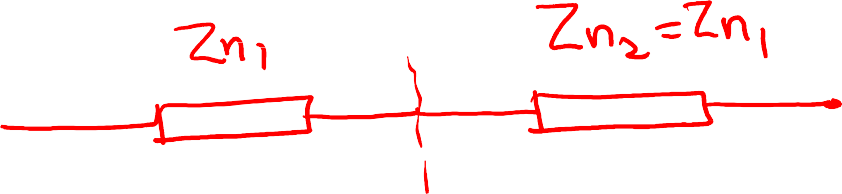 Zn₁
Zn₂=Zn₁